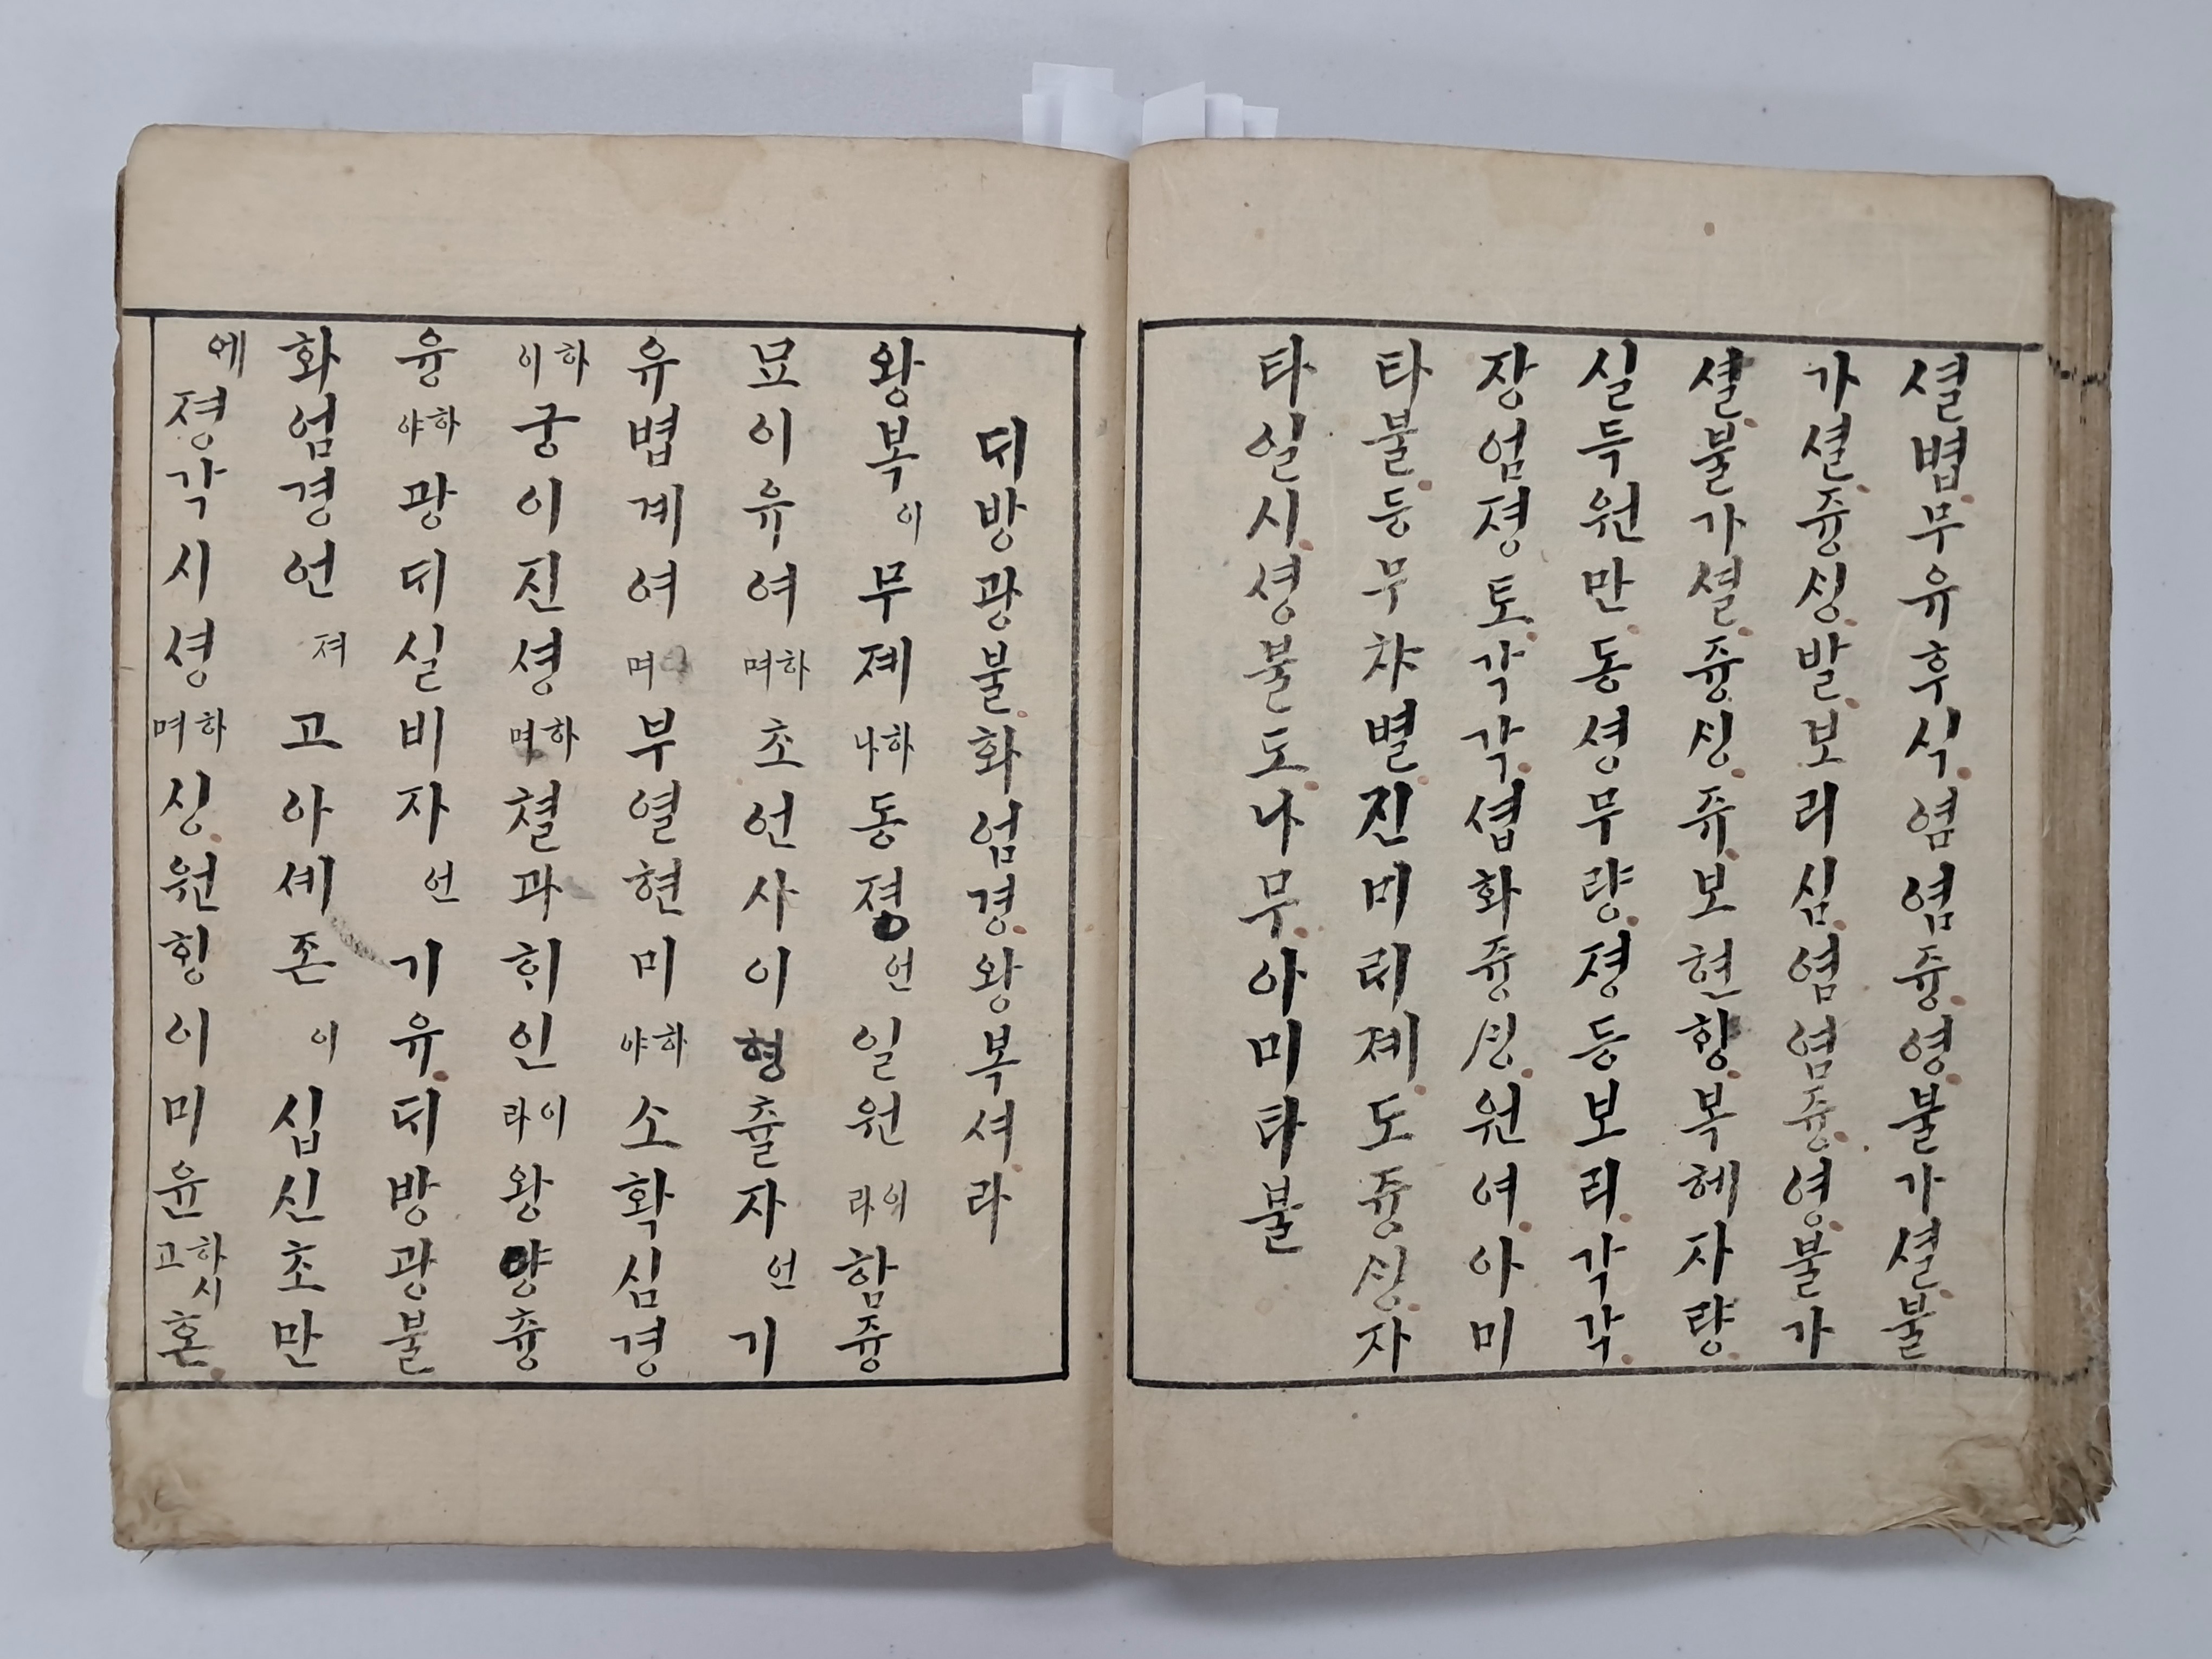 셜볍무유후식염염즁영불가셜불
가셜즁ᄉᆡᆼ발보리심염염즁영불가
셜불가셜즁ᄉᆡᆼ쥬보현ᄒᆡᆼ복혜자량
실득원만동셩무량졍등보리각각
장엄졍토각각셥화즁ᄉᆡᆼ원여아미
타불등무챠별진미ᄅᆡ졔도즁ᄉᆡᆼ자
타일시셩불도나무아미타불
ᄃᆡ방광불화엄경왕복셔라
왕복이무졔하나동졍언일원이라함즁
묘이유여하며초언사이형츌자언기
유볍계여며부열현미하야소확심경
하이궁이진셩하며쳘과ᄒᆡ인이라왕양츙
융하야광ᄃᆡ실비자언기유ᄃᆡ방광불
화엄경언져고아셰존이십신초만
에졍각시셩하며ᄉᆡᆼ원ᄒᆡᆼ이미윤하시고혼